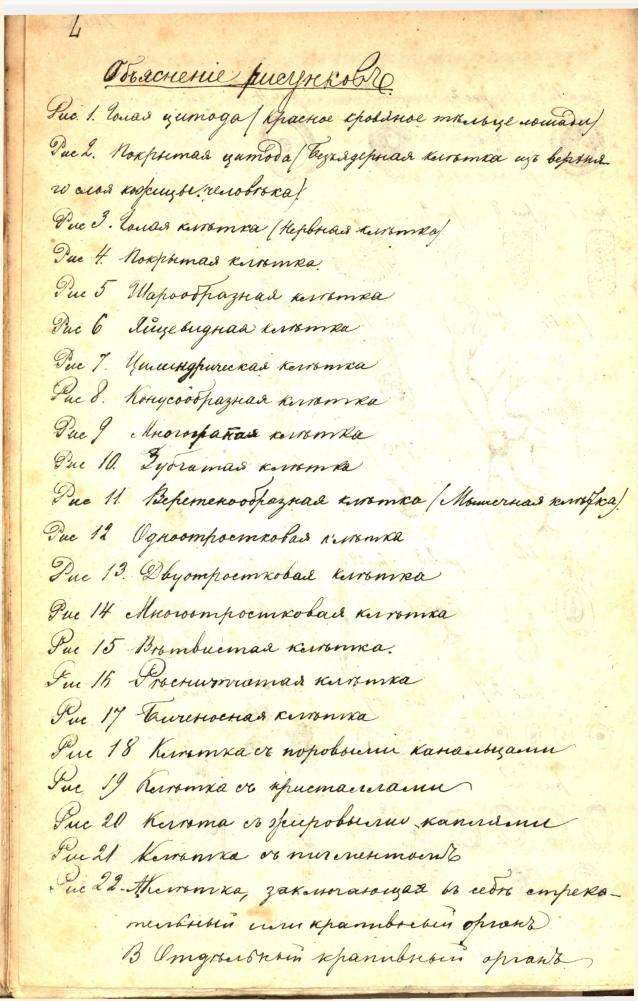 2
Объясненіе рисунковъ
Рис. 1. Голая цитода (Красное кровяное тѣльце лошади)
Рис 2. Покрытая цитода (Безъядерная клѣтка изъ верхня
го слоя кожицы человѣка)
Рис 3. Голая клѣтка (Нервная клѣтка)
Рис 4. Покрытая клѣтка.
Рис 5 Шарообразная клѣтка
Рис 6 Яйцевидная клѣтка
Рис 7. Цилиндрическая клѣтка
Рис 8. Конусообразная клѣтка
Рис 9 Многограная клѣтка
Рис 10. Зубчатая клѣтка
Рис 11. Веретенообразная клѣтка (Мышечная клѣтка).
Рис 12 Одноотростковая клѣтка
Рис 13. Двуотростковая клѣтка
Рис 14 Многоотростковая клѣтка
Рис 15 Вѣтвистая клѣтка.
Рис 16 Рѣснитчатая клѣтка
Рис 17 Биченосная клѣтка
Рис 18 Клѣтка съ поровыми канальцами
Рис 19 Клѣтка съ кристаллами
Рис 20 Клѣта съ жировыми каплями
Рис 21 Клѣтка съ пигментомъ
Рис 22. А Клѣтка, заключающая въ себѣ стрека-
тельный или крапивный органъ
В Отдѣльный крапивный органъ